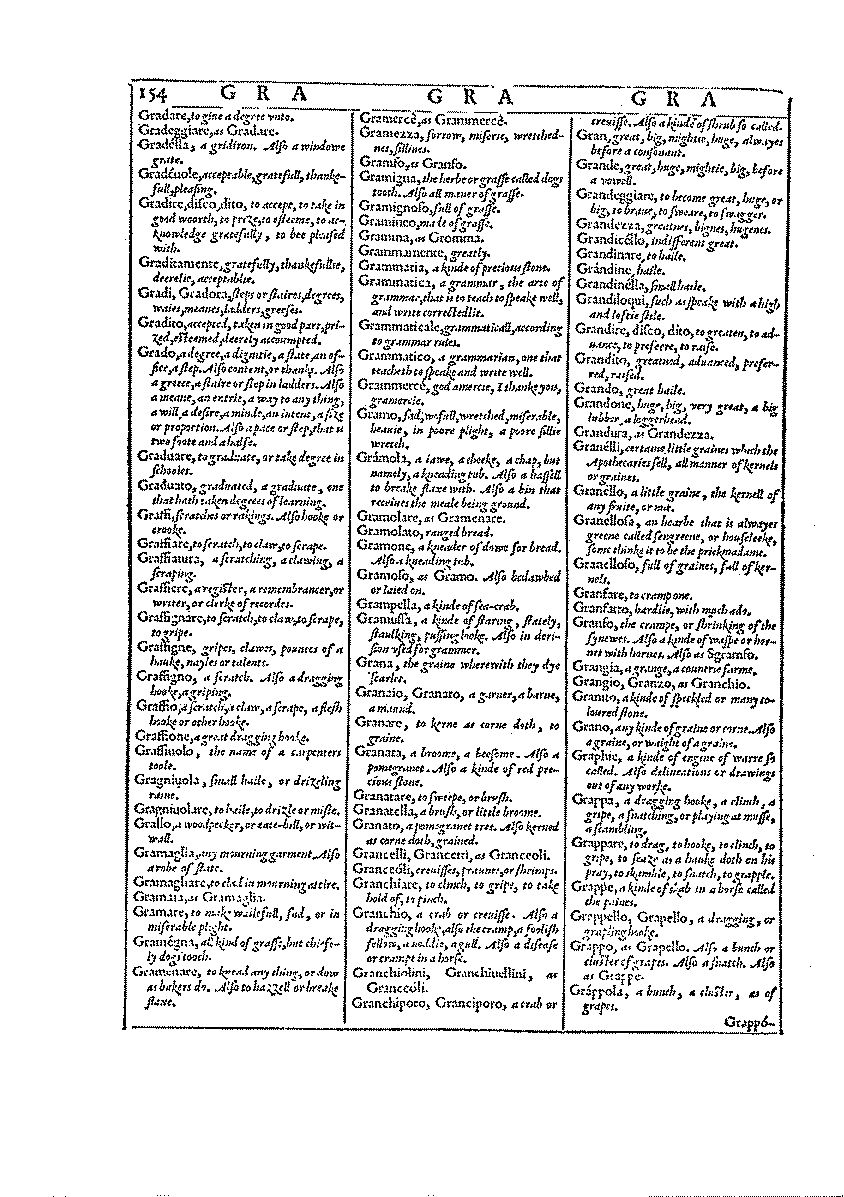 154 G R A G R A G R A
Gradare, to giue a degree vnto.
Gradeggiare, as Gradare.
Gradélla, a gridiron. Also a windowe
grate.
Gradéuole, acceptable, gratefull, thanke-
full, pleasing.
Gradire, disco, dito, to accept, to take in
good woorth, to prize, to esteeme, to ac-
knowledge gratefully, to bee pleased
with.
Graditamente, gratefully, thankefullie,
deerelie, acceptablie.
Gradi, Gradora, steps or staires, degrees,
waies, meanes, ladders, greeses.
Gradito, accepted, taken in good part, pri-
zed, esteemed, deerely accompted.
Grado, a degree, a dignitie, a state, an of-
fice, a step. Also content, or thanke. Also
a greece, a staire or step in ladders. Also
a meane, an entrie, a way to any thing,
a will, a desire, a minde, an intent, a size
or proportion. Also a pace or step, that is
two foote and a halfe.
Graduare, to graduate, or take degree in
schooles.
Graduato, graduated, a graduate, one
that hath taken degrees of learning.
Graffi, scratches or rakings. Also hooke or
crooke.
Graffiare, to scratch, to claw, to scrape.
Graffiatura, a scratching, a clawing, a
scraping.
Graffiere, a register, a remembrancer, or
writer, or clerke of recordes.
Graffignare, to scratch, to claw, to scrape,
to gripe.
Graffigne, gripes, clawes, pounces of a
hauke, nayles or talents.
Graffigno, a scratch. Also a dragging
hooke, a griping.
Graffio, a scratch, a claw, a scrape, a flesh
hooke or other hooke.
Graffione, a great dragging hooke.
Graffiuolo, the name of a carpenters
toole.
Gragniuola, small haile, or drizeling
raine.
Gragniuolare, to haile, to drizle or misle.
Grallo, a woodpecker, or eate-bill, or wit-
wall.
Gramaglia, any mourning garment. Also
a robe of state.
Gramagliare, to clad in mourning attire.
Gramaia, as Gramaglia.
Gramare, to make wailefull, sad, or in
miserable plight.
Gramégna, all kind of grasse, but chiefe-
ly dogs tooth.
Gramenare, to knead any thing, or dow
as bakers do. Also to hazzell or breake
flaxe.
Gramercè, as Grammercè.
Gramezza, sorrow, miserie, wretched-
nes, sillines.
Gramfo, as Granfo.
Gramigna, the herbe or grasse called dogs
tooth. Also all maner of grasse.
Gramignoso, full of grasse.
Gramineo, made of grasse.
Gramna, as Gromma.
Grammanente, greatly.
Grammatia, a kinde of precious stone.
Grammatica, a grammar, the arte of
grammar, that is to teach to speake well,
and write correctedlie.
Grammaticale, grammaticall, according
to grammar rules.
Grammatico, a grammarian, one that
teacheth to speake and write well.
Grammercè, god amercie, I thanke you,
gramercie.
Gramo, sad, wofull, wretched, miserable,
heauie, in poore plight, a poore sillie
wretch.
Grámola, a iawe, a cheeke, a chap, but
namely, a kneading tub. Also a hassell
to breake flaxe with. Also a bin that
receiues the meale being ground.
Gramolare, as Gramenare.
Gramolato, ranged bread.
Gramone, a kneader of dowe for bread.
Also a kneading tub.
Gramoso, as Gramo. Also bedawbed
or laied on.
Grampella, a kinde of sea-crab.
Gramussa, a kinde of staring, stately,
staulking, puffing looke. Also in deri-
sion vsed for grammer.
Grana, the graine wherewith they dye
scarlet.
Granaio, Granaro, a garner, a barne,
a maund.
Granare, to kerne as corne doth, to
graine.
Granata, a broome, a beesome. Also a
pomegranet. Also a kinde of red pre-
cious stone.
Granatare, to sweepe, or brush.
Granatella, a brush, or little broome.
Granato, a pomegranet tree. Also kerned
as corne doth, grained.
Grancelli, Grancetti, as Granceoli.
Grancéoli, creuisses, praunes, or shrimps.
Granchiare, to clinch, to gripe, to take
hold of, to pinch.
Granchio, a crab or creuisse. Also a
dragging hooke, also the cramp, a foolish
fellow, a noddie, a gull. Also a disease
or crampe in a horse.
Granchiolini, Granchiuellini, as
Grancéoli.
Granchiporo, Granciporo, a crab or
creuisse. Also a kinde of shrub so called.
Gran, great, big, mightie, huge, alwayes
before a consonant.
Grande, great, huge, mightie, big, before
a vowell.
Grandeggiare, to become great, huge, or
big, to braue, to sweare, to swagger.
Grandezza, greatnes, bignes, hugenes.
Grandicéllo, indifferent great.
Grandinare, to haile.
Grándine, haile.
Grandinélla, small haile.
Grandíloqui, such as speake with a high
and loftie stile.
Grandire, disco, dito, to greaten, to ad-
uance, to preferre, to raise.
Grandito, greatned, aduanced, prefer-
red, raised.
Grando, great haile.
Grandone, huge, big, very great, a big
lubber, a loggerhead.
Grandura, as Grandezza.
Granélli, certaine little graines which the
Apothecaries sell, all manner of kernels
or graines.
Granéllo, a little graine, the kernell of
any fruite, or nut.
Granellosa, an hearbe that is alwayes
greene called sengreene, or houseleeke,
some thinke it to be the prickmadame.
Granelloso, full of graines, full of ker-
nels.
Granfare, to crampone.
Granfatto, hardlie, with much ado.
Granfo, the crampe, or shrinking of the
synewes. Also a kinde of waspe or hor-
net with hornes. Also as Sgramfo.
Grangia, a grange, a countrie farme.
Grangio, Granzo, as Granchio.
Granito, a kinde of speckled or many co-
loured stone.
Grano, any kinde of graine or corne. Also
a graine, or waight of a graine.
Graphie, a kinde of engine of warre so
called. Also delineations or drawings
out of any worke.
Grappa, a dragging hooke, a clinch, a
gripe, a snatching, or playing at musse,
a scambling.
Grappare, to drag, to hooke, to clinch, to
gripe, to seaze as a hauke doth on his
pray, to skamble, to snatch, to grapple.
Grappe, a kinde of scab in a horse called
the paines.
Grappello, Grapello, a dragging, or
grapling hooke.
Grappo, as Grapello. Also a bunch or
cluster of grapes. Also a snatch. Also
as Grappe.
Gráppola, a bunch, a cluster, as of
grapes.
Grappó-